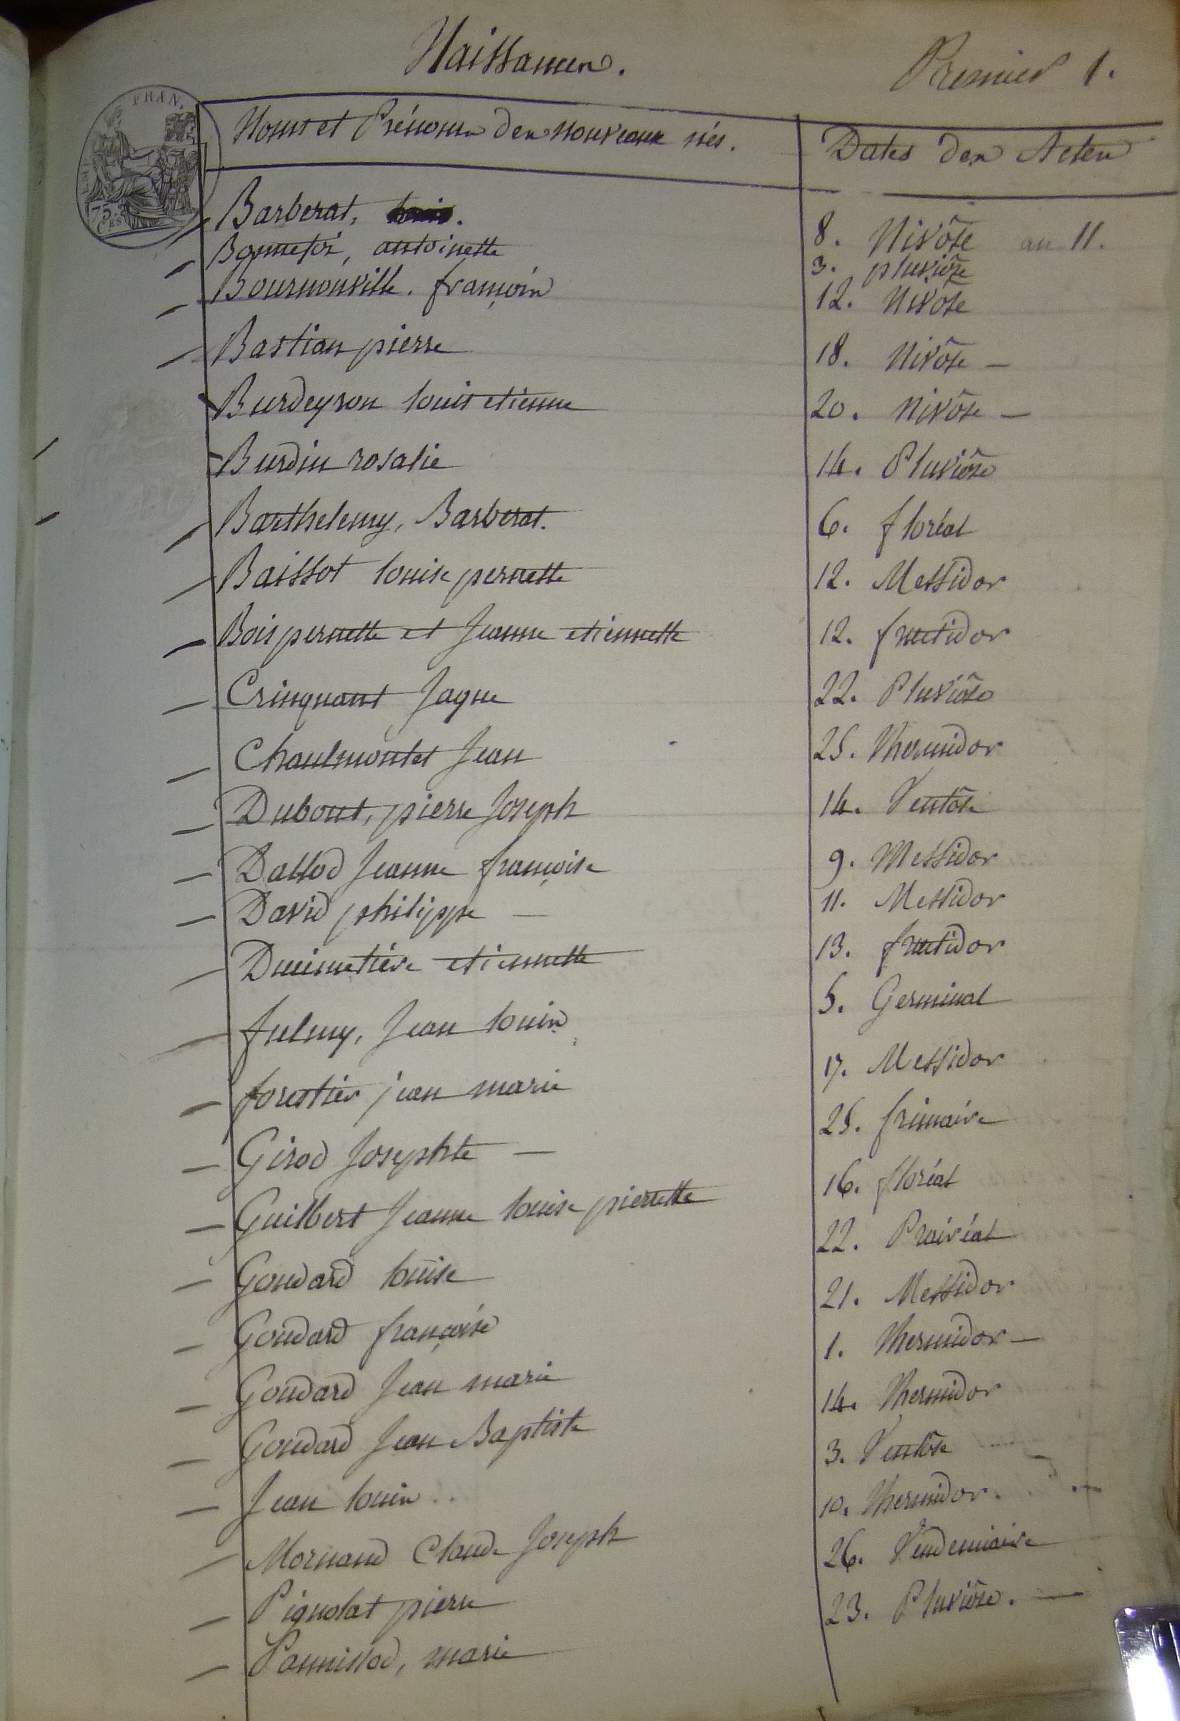 Naissances. Premier 1.
FRAN.
75 C.
Noms et Prénoms des nouveaux nés. Dates des Actes
Barberat, 8. Nivôse an 11.
Bonnefoi, antoinette 3. pluviôse
Bournonville. françois 12. Nivôse
Bastian pierre 18. Nivôse —
Burdeyron louis etienne 20. Nivôse —
Burdin rosalie 14. Pluviôse
Barthelemy, Barberat. 6. floréal
Baissot louise pernette 12. Messidor
Bois pernette et Jeanne etiennette 12. fructidor
Crinquant Jaque 22. Pluviôse
Chaulmontet Jean 25. Thermidor
Dubout, pierre Joseph 14. Ventôse
Dallod Jeanne françoise 9. Messidor
David philippe — 11. Messidor
Ducimetière etiennette 13. fructidor
fulmy, Jean louis 5. Germinal
forestier jean marie 17. Messidor
Girod Josephte — 25. frimaire
Guilbert Jeanne louise pierrette 16. floréal
Goudard louise 22. Prairéal
Goudard françoise 21. Messidor
Goudard Jean marie 1. Thermidor —
Goudard Jean Baptiste 14. Thermidor
Jean louis 3. Ventôse
Mornand Claude Joseph 10. Thermidor.
Pignolat pierre 26. Vendemiaire
Pannissod, marie 23. Pluviôse. —